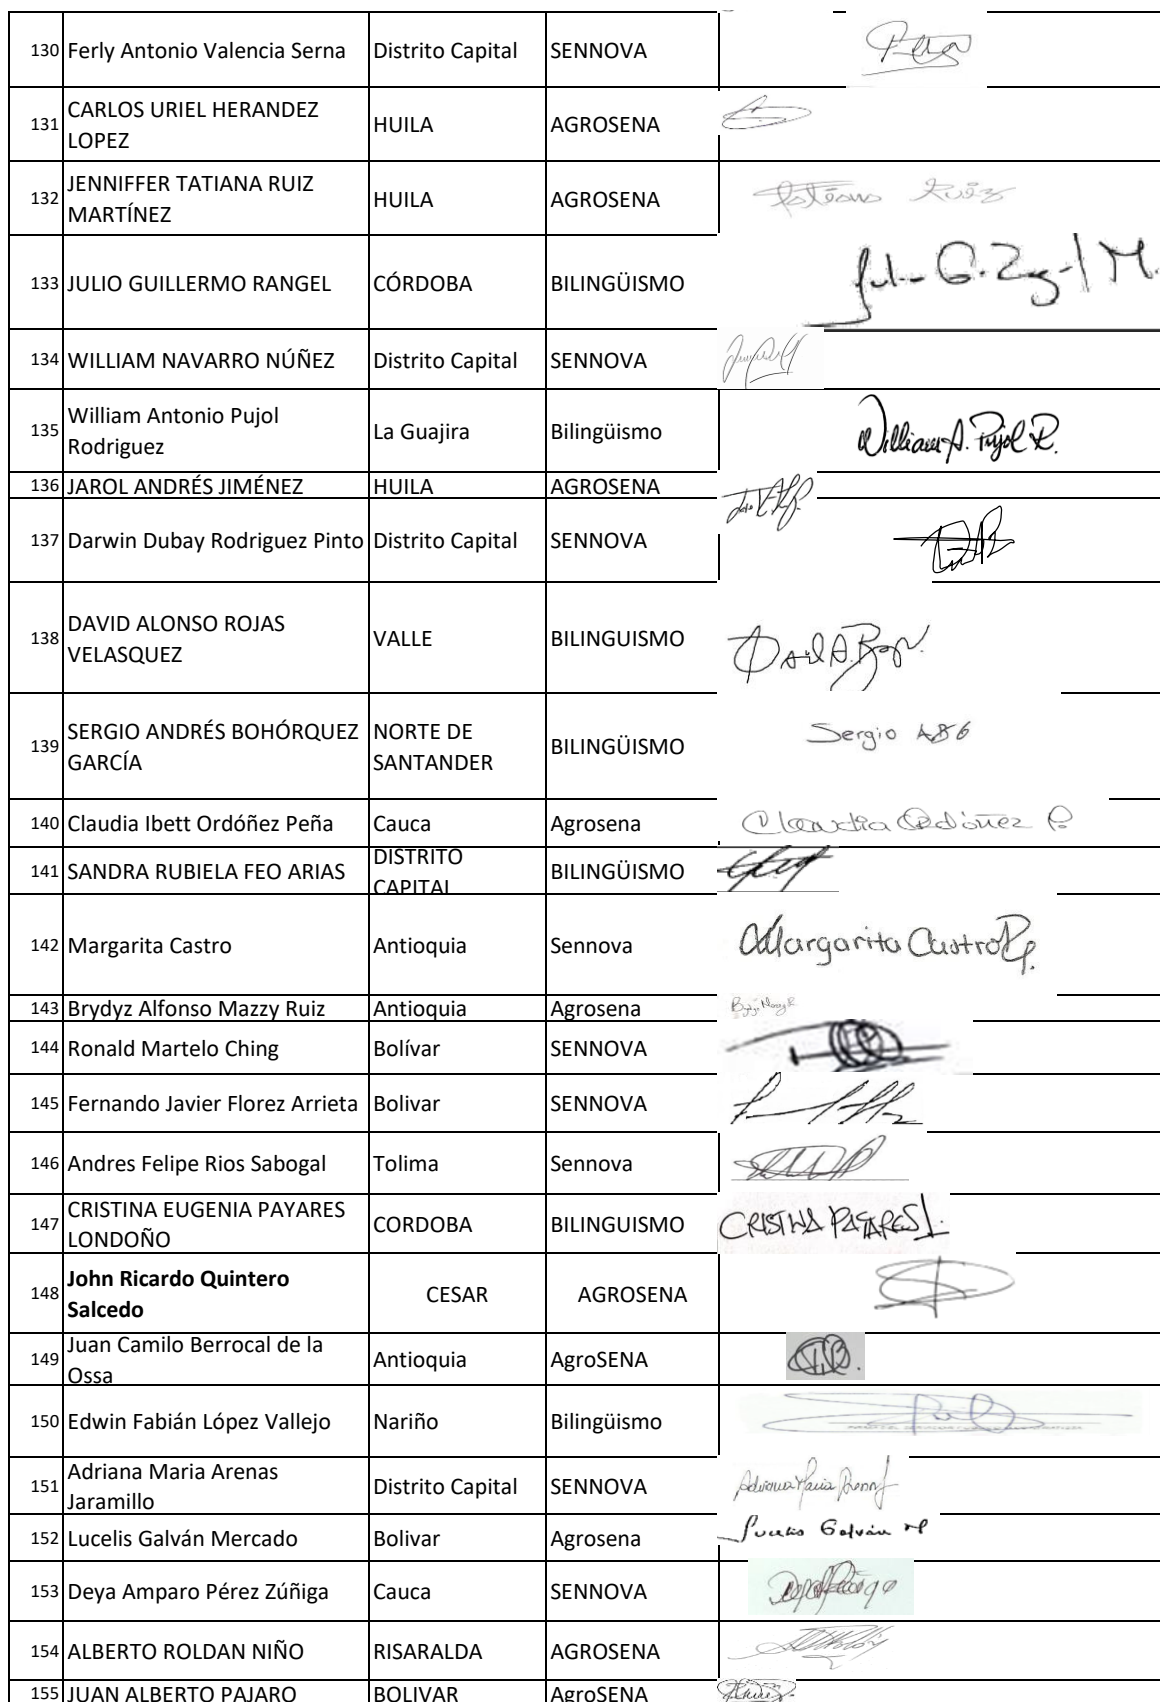 130 Ferly Antonio Valencia Serna Distrito Capital SENNOVA
131 CARLOS URIEL HERANDEZ LOPEZ HUILA AGROSENA
132 JENNIFFER TATIANA RUIZ MARTÍNEZ HUILA AGROSENA Ruiz
133 JULIO GUILLERMO RANGEL CÓRDOBA BILINGÜISMO
134 WILLIAM NAVARRO NÚÑEZ Distrito Capital SENNOVA
135 William Antonio Pujol Rodriguez La Guajira Bilingüismo William A. Pujol R.
136 JAROL ANDRÉS JIMÉNEZ HUILA AGROSENA
137 Darwin Dubay Rodriguez Pinto Distrito Capital SENNOVA
138 DAVID ALONSO ROJAS VELASQUEZ VALLE BILINGUISMO
139 SERGIO ANDRÉS BOHÓRQUEZ GARCÍA NORTE DE SANTANDER BILINGÜISMO Sergio ABG
140 Claudia Ibett Ordóñez Peña Cauca Agrosena Claudia Ordóñez P.
141 SANDRA RUBIELA FEO ARIAS DISTRITO CAPITAL BILINGÜISMO
142 Margarita Castro Antioquia Sennova Margarita Castro
143 Brydyz Alfonso Mazzy Ruiz Antioquia Agrosena
144 Ronald Martelo Ching Bolívar SENNOVA
145 Fernando Javier Florez Arrieta Bolivar SENNOVA
146 Andres Felipe Rios Sabogal Tolima Sennova
147 CRISTINA EUGENIA PAYARES LONDOÑO CORDOBA BILINGUISMO CRISTINA PAYARES L.
148 John Ricardo Quintero Salcedo CESAR AGROSENA
149 Juan Camilo Berrocal de la Ossa Antioquia AgroSENA
150 Edwin Fabián López Vallejo Nariño Bilingüismo
151 Adriana Maria Arenas Jaramillo Distrito Capital SENNOVA Adriana Maria
152 Lucelis Galván Mercado Bolivar Agrosena Lucelis Galván M
153 Deya Amparo Pérez Zúñiga Cauca SENNOVA
154 ALBERTO ROLDAN NIÑO RISARALDA AGROSENA
155 JUAN ALBERTO PAJARO BOLIVAR AgroSENA